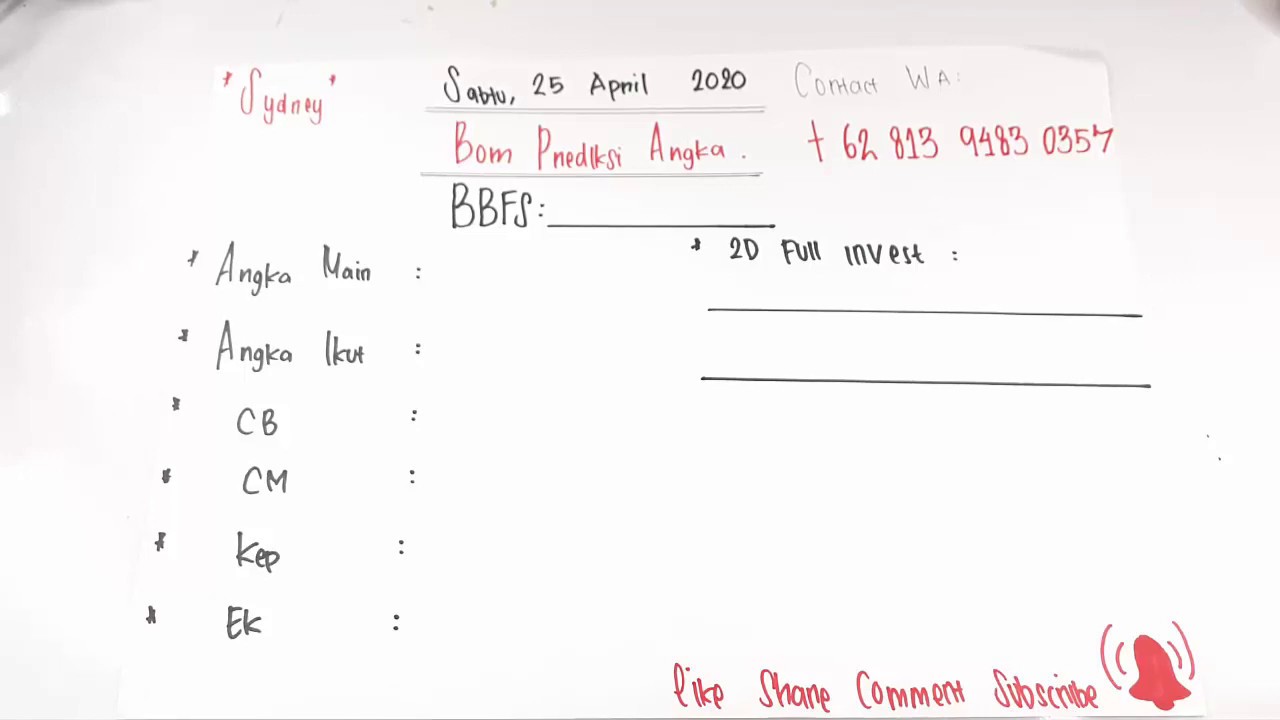 * Sydney *
Sabtu, 25 April 2020
Contact WA:
Bom Prediksi Angka.
+ 62 813 9483 0357
BBFS:
* 2D Full Invest :
* Angka Main :
* Angka Ikut :
* CB :
* CM :
* Kep :
* Ek :
like Share Comment Subscribe